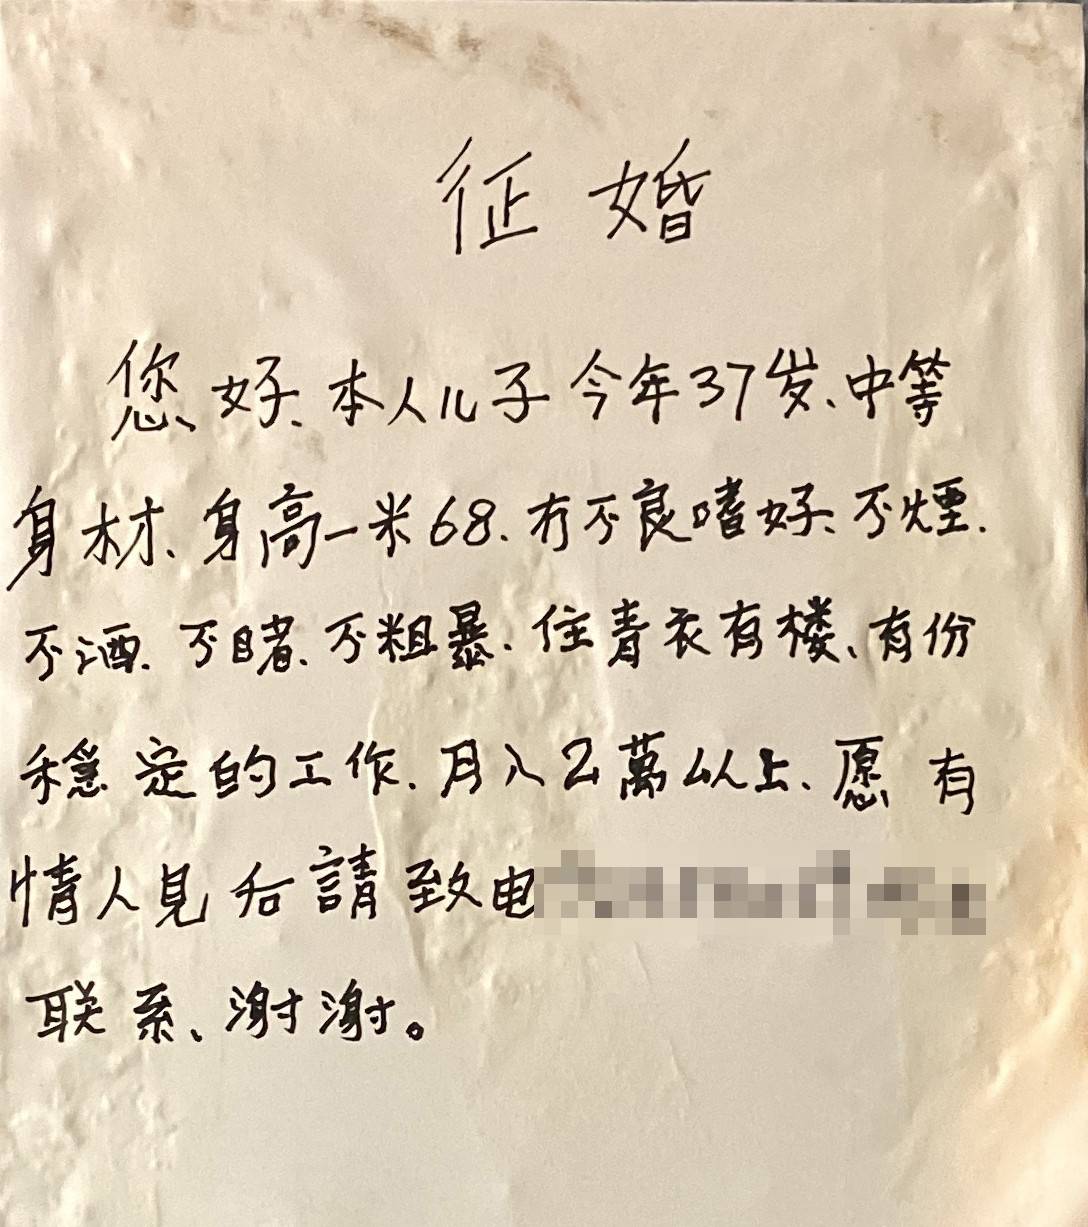 征婚
您好、本人儿子今年37岁、中等
身材、身高一米68.冇不良嗜好、不煙.
不酒.不賭.不粗暴.住青衣有楼、有份
穩定的工作.月入2萬以上、愿有
情人見后請致电
联系、谢谢。